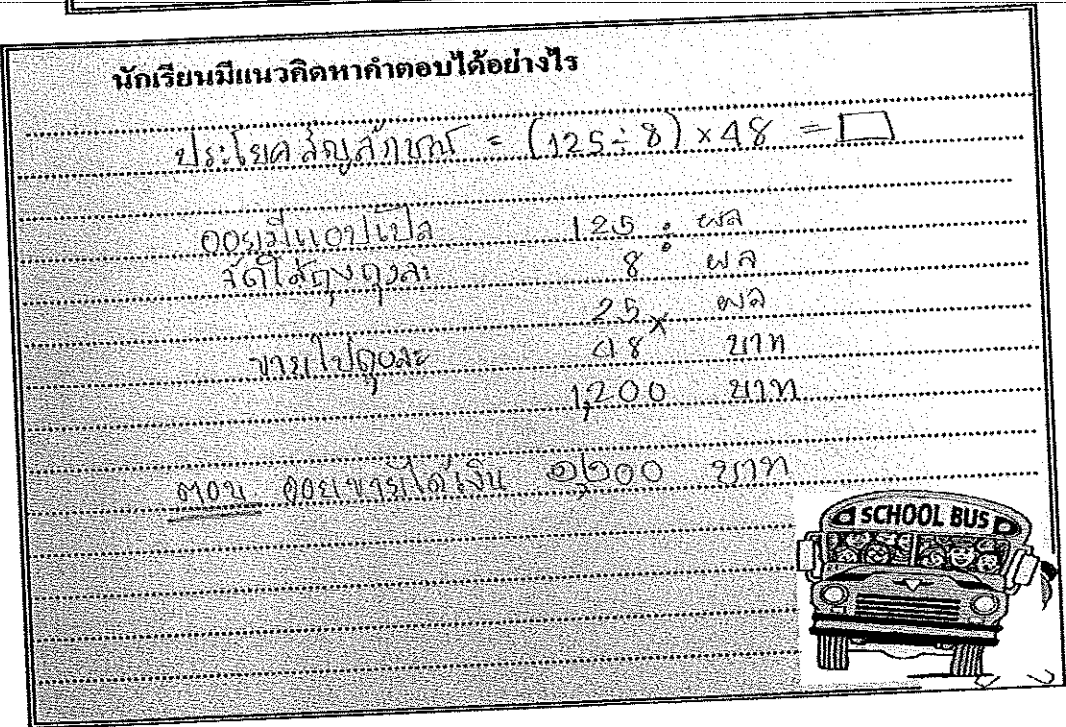 นักเรียนมีแนวคิดหาคำตอบได้อย่างไร
ประโยคสัญลักษณ์ = (125 ÷ 8) × 48 = □
ออยมีแอปเปิล 125 ÷ ผล
จัดใส่ถุงถุงละ 8 ผล
25 × ผล
ขายไปถุงละ 48 บาท
1,200 บาท
ตอบ ออยขายได้เงิน ๑,๒๐๐ บาท
SCHOOL BUS